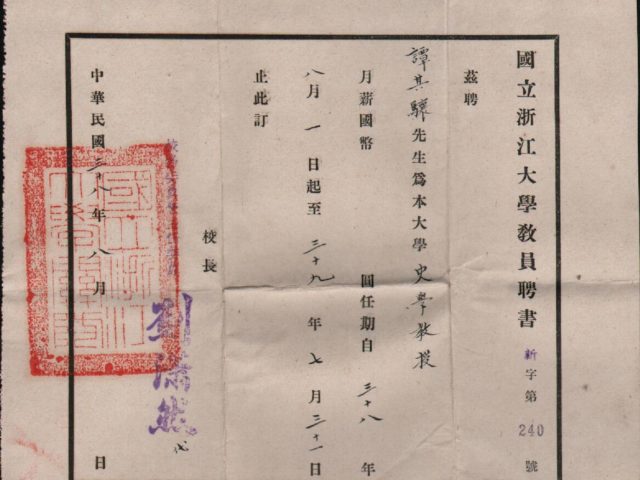 國立浙江大學教員聘書 新字第240號
茲聘
譚其驤先生爲本大學史學教授
月薪國幣 圓任期自三十八年
八月一日起至三十九年七月三十一日
止此訂
校長 劉瀟然 代
中華民國三八年八月 日